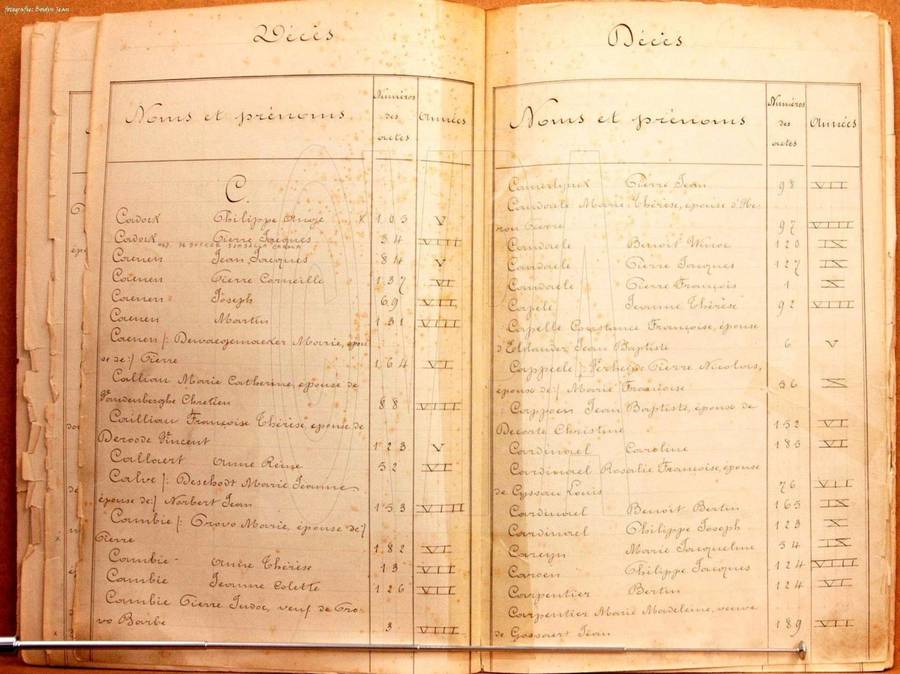 fotografies: Bordin Jean
Décès
Noms et prénoms
Numéros des actes
Années
C.
Cadock Philippe Ange 103 V
Cadock Pierre Jacques 34 VIII
Caenen Jean Jacques 84 V
Caenen Pierre Corneille 137 VI
Caenen Joseph 69 VII
Caenen Martin 131 VIII
Caenen /: Dewaegemaeker Marrie, épou
se de :/ Pierre 164 VI
Calliau Marie Catherine, epouse de
Vandenberghe Chretien 88 VIII
Cailliau Françoise Thérèse, epouse de
Deroode Vincent 123 V
Callaert Anne Reine 52 VI
Calve /: Deschodt Marie Jeanne
épouse de :/ Norbert Jean 153 VIII
Cambie /: Trovo Marie, épouse de :/
Pierre 182 VI
Cambie Anne Thérèse 13 VII
Cambie Jeanne Colette 126 VII
Cambie Pierre Judoc, veuf de Tro-
vo Barbe 3 VIII
Décès
Noms et prénoms
Numéros des actes
Années
Camerlynck Pierre Jean 98 VII
Candaele Marie Thérèse, epouse d'He
ron Pierre 97 VIII
Candaele Benoit Winoc 120 IX
Candaele Pierre Jacques 127 IX
Candaele Pierre François 1 X
Capele Jeanne Thérèse 92 VIII
Capelle Constance Françoise, épouse
d'Elslander Jean Baptiste 6 V
Cappeele /: Verheide Pierre Nicolas,
épouse de :/ Marie Françoise 36 X
Cappoen Jean Baptiste, épouse de
Decorte Christine 152 VI
Cardinael Caroline 185 VI
Cardinael Rosalie Françoise, épouse
de Cyssau Louis 76 VII
Cardinael Benoit Bertin 165 IX
Cardinael Philippe Joseph 123 X
Careyn Marie Jacqueline 54 IX
Caroen Philippe Jacques 124 VIII
Carpentier Bertin 124 VI
Carpentier Marie Madeleine, veuve
de Gossaert Jean 189 VII